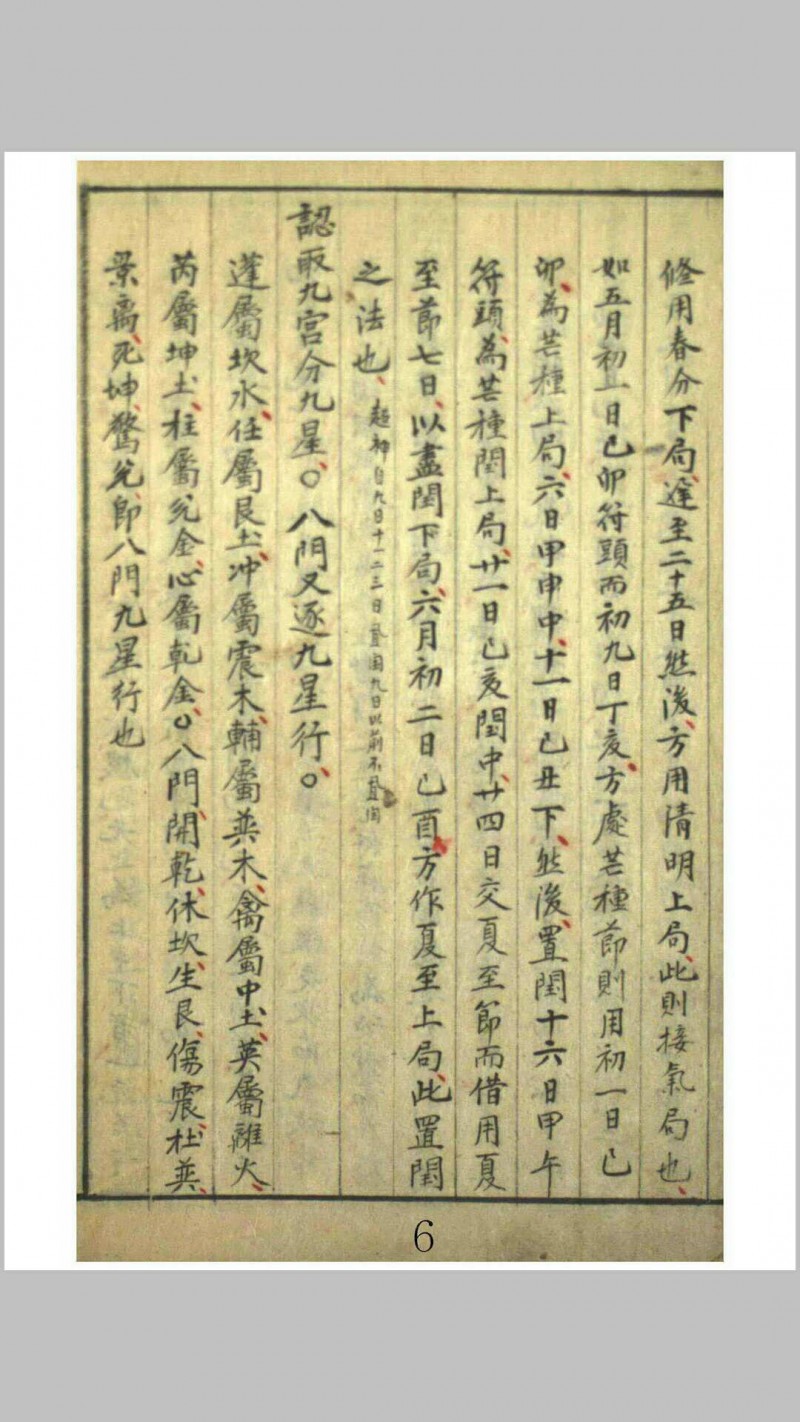 修用春分下局、遲至二十五日然後、方用清明上局、此則接氣局也、
如五月初一日己卯符頭而初九日丁亥、方處芒種節則用初一日己
卯、為芒種上局、六日甲申中、十一日己丑下、然後、置閏十六日甲午
符頭、為芒種閏上局、廿一日己亥閏中、廿四日交夏至節而借用夏
至節七日、以盡閏下局、六月初二日己酉方作夏至上局、此置閏
之法也、超神自九日十一二三日 閏九日以前不 閏
認取九宮分九星。八門又逐九星行。
蓬屬坎水、任屬艮土、冲屬震木、輔屬巽木、禽屬中土、英屬離火、
芮屬坤土、柱屬兌金、心屬乾金。八門、開乾、休坎、生艮、傷震、杜巽、
景离、死坤、驚兌、即八門九星行也
6